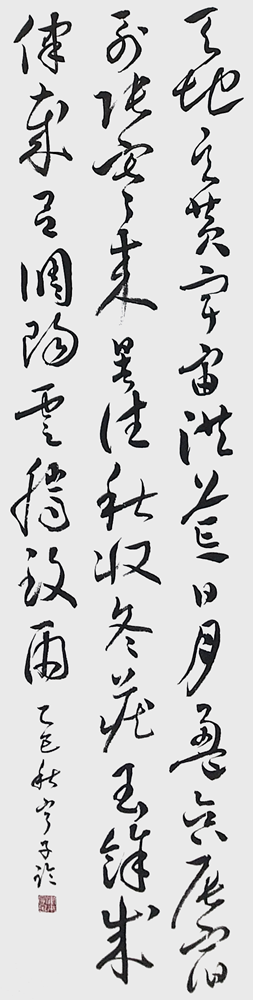 天地玄黃宇宙洪荒日月盈昃辰宿
列張寒來暑往秋收冬藏閏餘成
律歲呂調陽雲騰致雨
乙巳秋